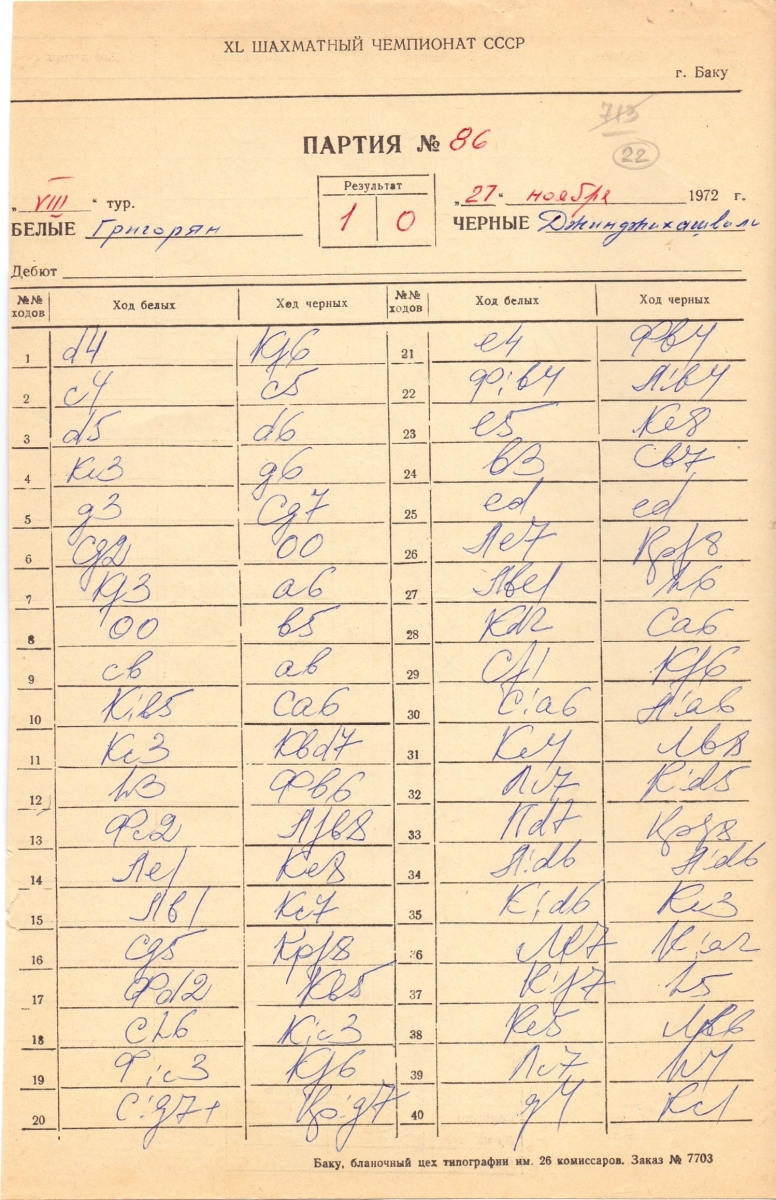 XL ШАХМАТНЫЙ ЧЕМПИОНАТ СССР
г. Баку
713
ПАРТИЯ № 86
22
„VIII“ тур.
Результат
„27“ ноября 1972 г.
БЕЛЫЕ Григорян
1 0
ЧЕРНЫЕ Джинджихашвили
Дебют
№№ ходов Ход белых Ход черных №№ ходов Ход белых Ход черных
1 d4 Кf6 21 e4 Фв4
2 c4 c5 22 Ф:в4 Л:в4
3 d5 d6 23 e5 Кe8
4 Кc3 g6 24 в3 Св7
5 g3 Сg7 25 ed ed
6 Сg2 00 26 Лe7 Крf8
7 Кf3 a6 27 Лвe1 h6
8 00 в5 28 Кd2 Сa6
9 cв aв 29 Сf1 Кf6
10 К:в5 Сa6 30 С:a6 Л:a6
11 Кc3 Квd7 31 Кe4 Лв8
12 h3 Фв6 32 Лc7 К:d5
13 Фc2 Лfв8 33 Лd7 Крg8
14 Лe1 Кe8 34 Л:d6 Л:d6
15 Лв1 Кc7 35 К:d6 Кc3
16 Сg5 Крf8 36 Лe7 К:a2
17 Фd2 Кв5 37 К:f7 h5
18 Сh6 К:c3 38 Кe5 Лв6
19 Ф:c3 Кf6 39 Лc7 h4
20 С:g7+ Кр:g7 40 g4 Кc1
Баку, бланочный цех типографии им. 26 комиссаров. Заказ № 7703